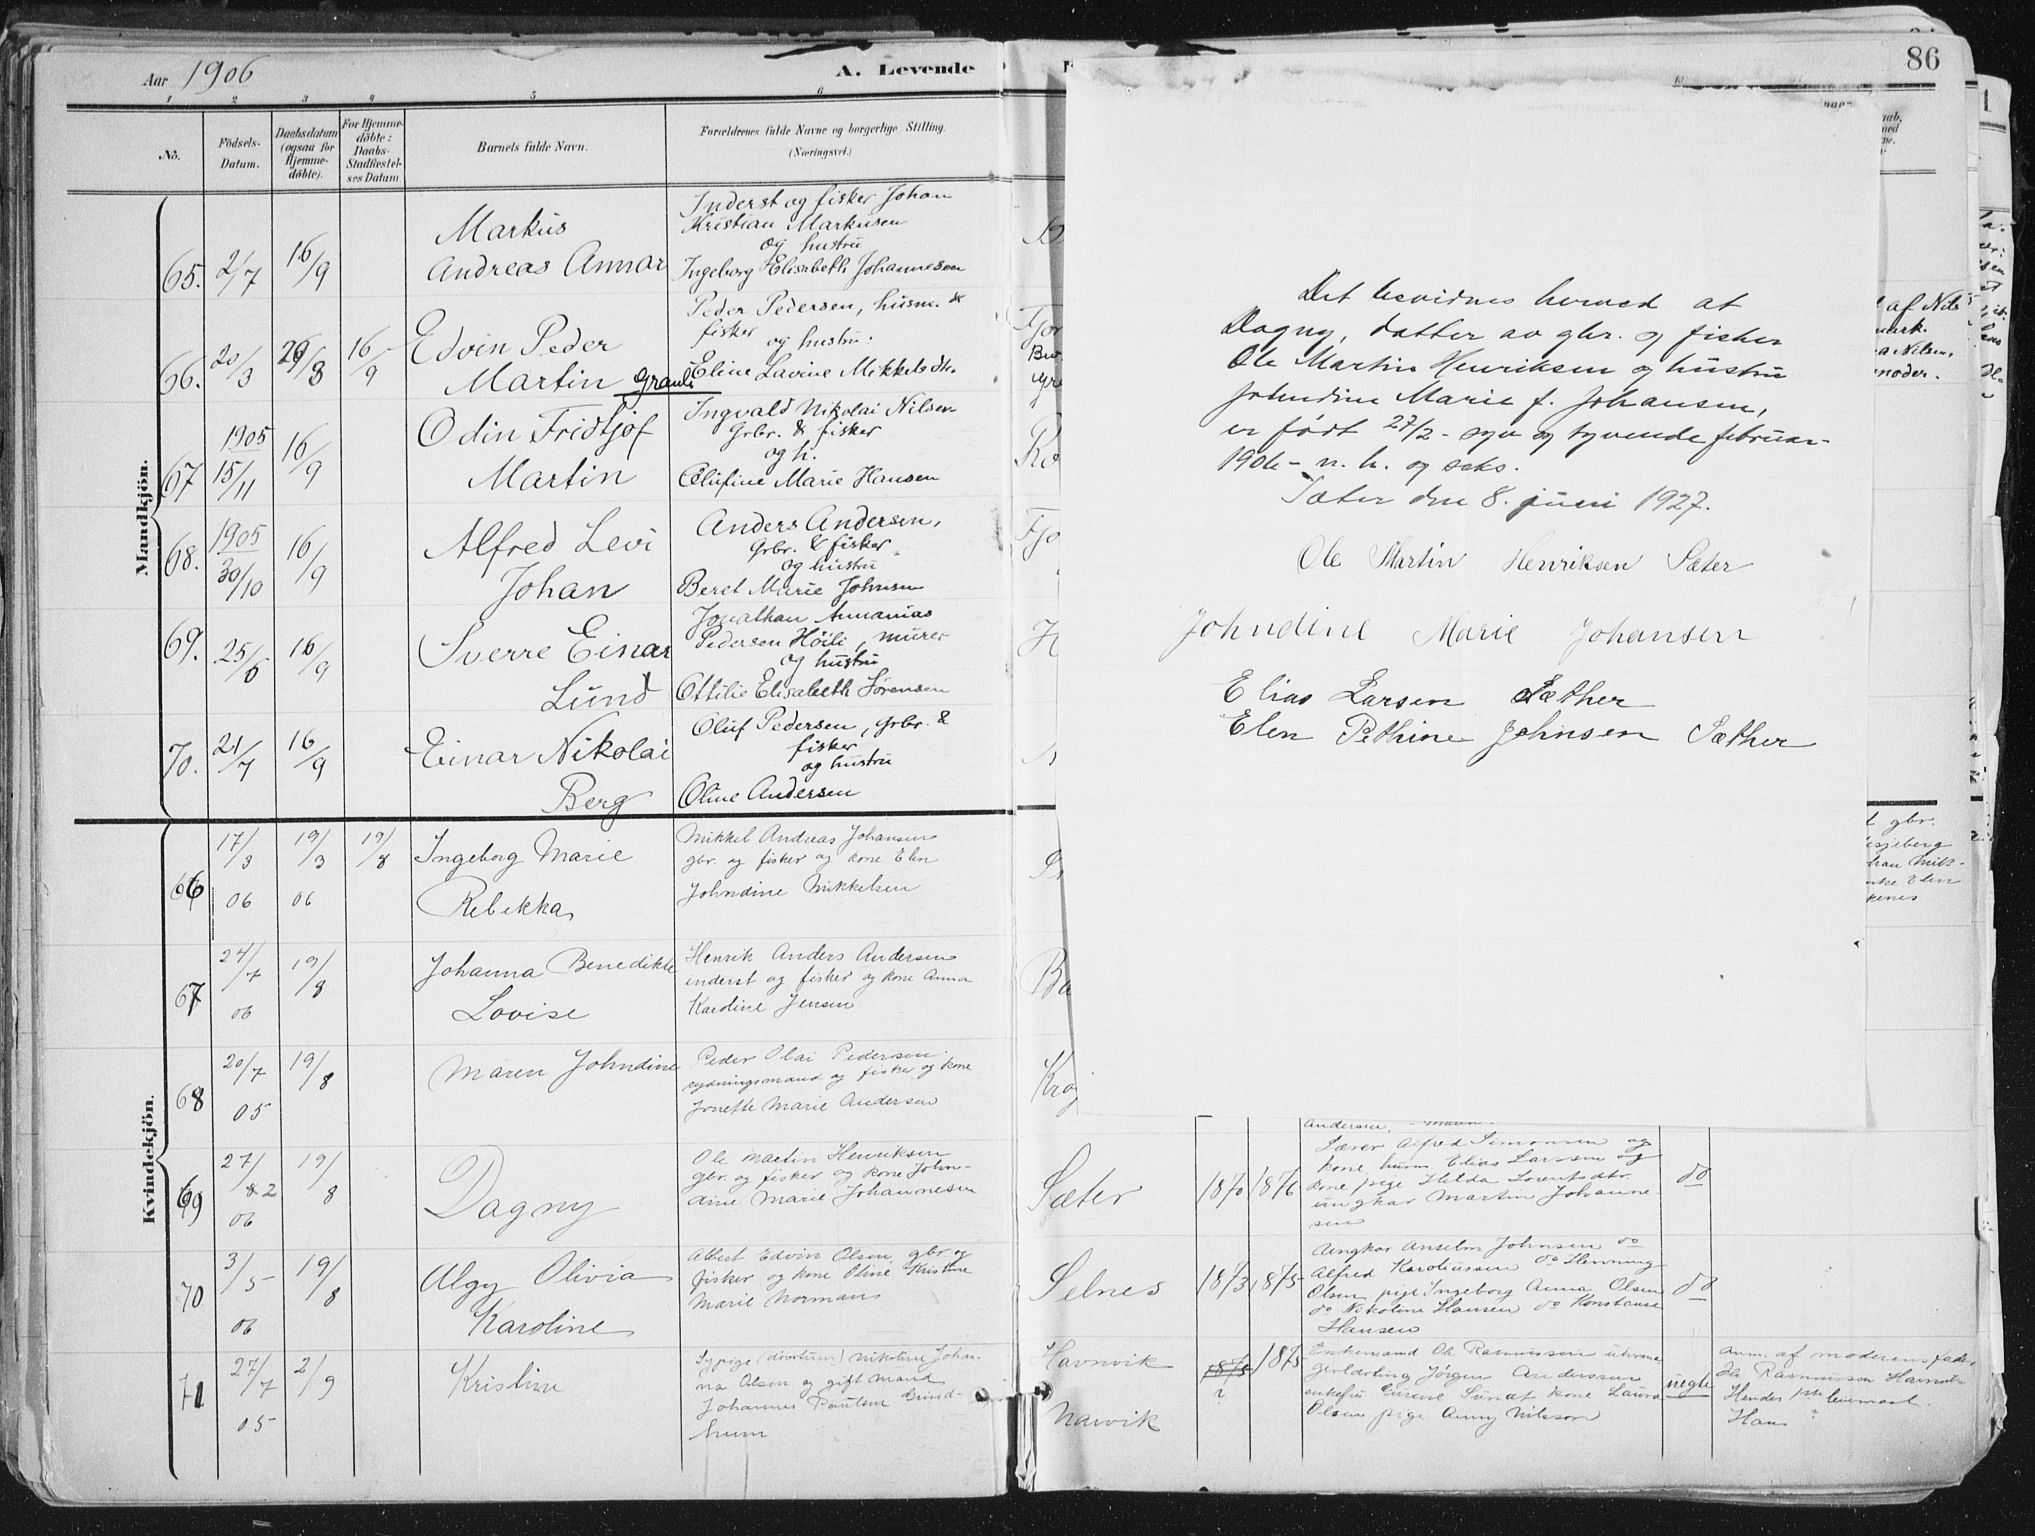 Aar 1906
A. Levende
86
1 2 3 4 5 6
No.
Födsels-
Datum.
Daabsdatum
(ogsaa for
Hjemme-
döbte).
For Hjemme-
döbte:
Daabs-
Stadfæstel-
ses Datum
Barnets fulde Navn.
Forældrenes fulde Navne og borgerlige Stilling.
(Næringsvei.)
Mandkjön.
65. 2/7 16/9
Markus
Andreas Annar
Inderst og fisker Johan
Kristian Markusen
og hustru
Ingeborg Elisabeth Johannesen
66. 20/3 26/8 16/9
Edvin Peder
Martin Granli
Peder Pedersen, husm. &
fisker og hustru:
Eline Lavine Mikkelsdtr.
67 1905 15/11 16/9
Odin Fridtjof
Martin
Ingvald Nikolai Nilsen
Grbr. & fisker
og h.
Olufine Marie Hansen
68. 1905 30/10 16/9
Alfred Levi
Johan
Anders Andersen,
Grbr. & fisker
og hustru
Beret Marie Johnsen
69. 25/5 16/9
Sverre Einar
Lund
Jonathan Annanias
Pedersen Höili, murer
og hustru
Ottilie Elisabeth Sörensen
70. 21/7 16/9
Einar Nikolai
Berg
Oluf Pedersen, grbr. &
fisker
og hustru
Oline Andersen
Kvindekjön.
66 17/3 06 19/3 06 19/8
Ingeborg Marie
Rebekka
Mikkel Andreas Johansen
gbr. og fisker og kone Elen
Johndine Mikkelsen
67 24/7 06 19/8
Johanna Benedikte
Lovise
Henrik Anders Andersen
inderst og fisker og kone Anna
Karoline Jensen
68 20/7 05 19/8
Maren Johndine
Peder Olai Pedersen
rydningsmand og fisker og kone
Jonette Marie Andersen
69 27/2 06 19/8
Dagny
Ole Martin Henriksen
gbr. og fisker og kone John-
dine Marie Johannesen
Sæter
1870 1876
Andersen.
Lærer Alfred Simonsen og
kone, husm. Elias Larssen og
kone pige Hilda Lorentsdtr.
ungkar Martin Johanne-
sen
do
70 3/5 06 19/8
Algy Olivia
Karoline
Albert Edvin Olsen, gbr. og
fisker og kone Oline Kristine
Marie Normans
Selnes
1873 1875
Ungkar Anselm Johnsen do
Alfred Karoliussen do Henning
Olsen pige Ingeborg Anna Olsen
do Nikoline Hansen do Konstanse
Hansen
do
71 27/7 05 2/9
Kristine
Sypige (døvstum) Nikoline Johan-
na Olsen og gift mand
Johannes Paulsen Grind-
hum
Havnvik
Narvik
1875
Enkemand Ole Rasmussen
Jørgen Anderssen
kone Laura
Olsen pige Anny Nilsson
uegte
anm. af moderens fader
Ole Rasmussen Havnvik
Det bevidnes herved at
Dagny, datter av gbr. og fisker
Ole Martin Henriksen og hustru
Johndine Marie f. Johansen,
er født 27/2 - syv og tyvende februar -
1906 - n. h. og seks.
Sæter den 8. juni 1927.
Ole Martin Henriksen Sæter
Johndine Marie Johansen
Elias Larsen Sæther
Elen Pethine Johnsen Sæther